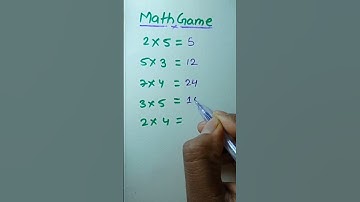 Math Game
2 × 5 = 5
5 × 3 = 12
7 × 4 = 24
3 × 5 = 1
2 × 4 =